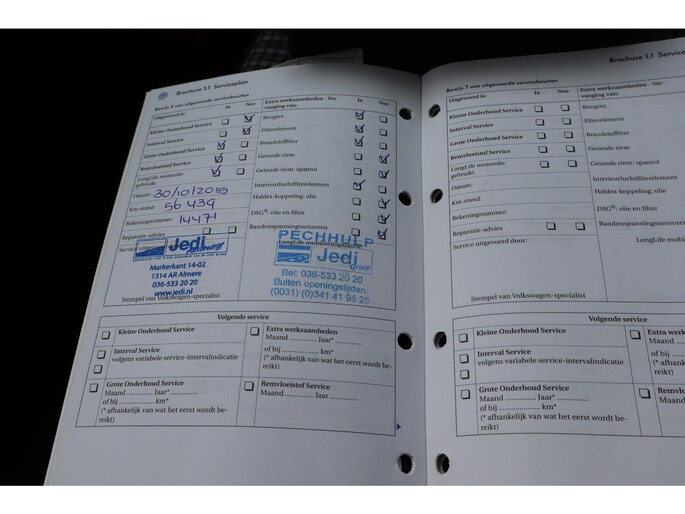 Brochure 5.1 Serviceplan
Bewijs 6 van uitgevoerde servicebeurten
Uitgevoerd is: Ja Nee
Kleine Onderhoud Service
Interval Service
Grote Onderhoud Service
Remvloeistof Service
LongLife motorolie gebruikt
Datum: 30/10/2019
Km-stand: 56439
Rekeningnummer: 14471
Reparatie-advies
Service uitgevoerd
Jedi
Markerkant 14-02
1314 AR Almere
036-533 20 20
www.jedi.nl
Stempel van Volkswagen-specialist
Extra werkzaamheden - Ver-
vanging van: Ja Nee
Bougies
Filterelement
Brandstoffilter
Getande riem
Getande riem: spanrol
Interieurluchtfilterelement
Haldex-koppeling: olie
DSG®: olie en filter
Bandenspanningssensoren
LongLife mobiliteitsgarantie
PECHHULP
Jedi
Groep
Bel: 036-533 20 20
Buiten openingstijden:
(0031) (0)341 41 95 28
Volgende service
Kleine Onderhoud Service
Interval Service
volgens variabele service-intervalindicatie
Grote Onderhoud Service
Maand ............ Jaar*............
of bij ............ km*
(* afhankelijk van wat het eerst wordt be-
reikt)
Extra werkzaamheden
Maand ............ Jaar*............
of bij ............ km*
(* afhankelijk van wat het eerst wordt be-
reikt)
Remvloeistof Service
Maand ............ Jaar ............
Brochure 5.1 Servic
Bewijs 7 van uitgevoerde servicebeurten
Uitgevoerd is: Ja Nee
Kleine Onderhoud Service
Interval Service
Grote Onderhoud Service
Remvloeistof Service
LongLife motorolie
gebruikt
Datum:
Km-stand:
Rekeningnummer:
Reparatie-advies
Service uitgevoerd door:
Stempel van Volkswagen-specialist
Extra werkzaamheden - Ver-
vanging van:
Bougies
Filterelement
Brandstoffilter
Getande riem
Getande riem: spanrol
Interieurluchtfilterelement
Haldex-koppeling: olie
DSG®: olie en filter
Bandenspanningssensoren
LongLife m
Volgende service
Kleine Onderhoud Service
Interval Service
volgens variabele service-intervalindicatie
Grote Onderhoud Service
Maand ............ Jaar*............
of bij ............ km*
(* afhankelijk van wat het eerst wordt be-
reikt)
Extra werk
Maand
of bij
(* afhankelij
reikt)
Remvloei
Maand